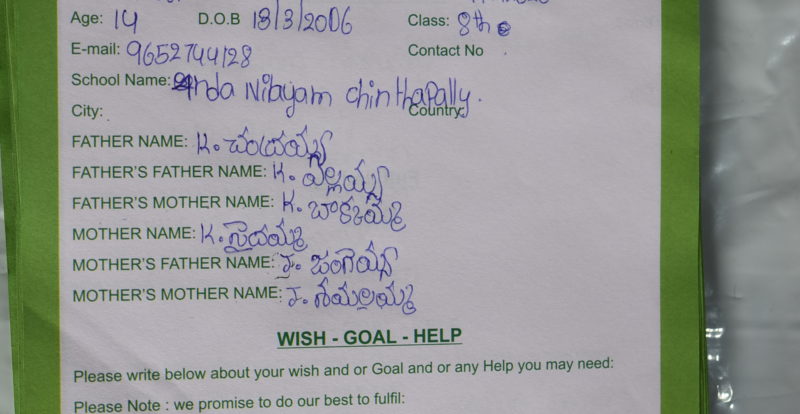 Age: 14 D.O.B 18/3/2006 Class: 8th
E-mail: 9652744128 Contact No
School Name: nda Nilayam chinthapally.
City: Country:
FATHER NAME: K. చంద్రయ్య
FATHER'S FATHER NAME: K. ఎల్లయ్య
FATHER'S MOTHER NAME: K. బాక్కమ్మ
MOTHER NAME: K. సైదమ్మ
MOTHER'S FATHER NAME: J. జంగయ్య
MOTHER'S MOTHER NAME: J.
WISH - GOAL - HELP
Please write below about your wish and or Goal and or any Help you may need:
Please Note : we promise to do our best to fulfil: